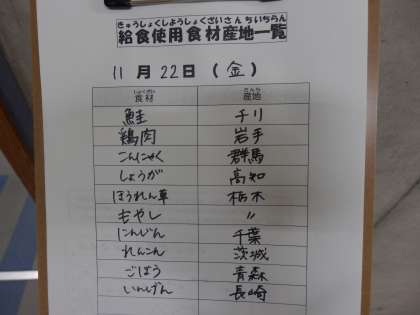 きゅうしょくしようしょくざいさんちいちらん
給食使用食材産地一覧
11月22日(金)
しょくざい さんち
食材 産地
鮭 チリ
鶏肉 岩手
こんにゃく 群馬
しょうが 高知
ほうれん草 栃木
もやし 〃
にんじん 千葉
れんこん 茨城
ごぼう 青森
いんげん 長崎